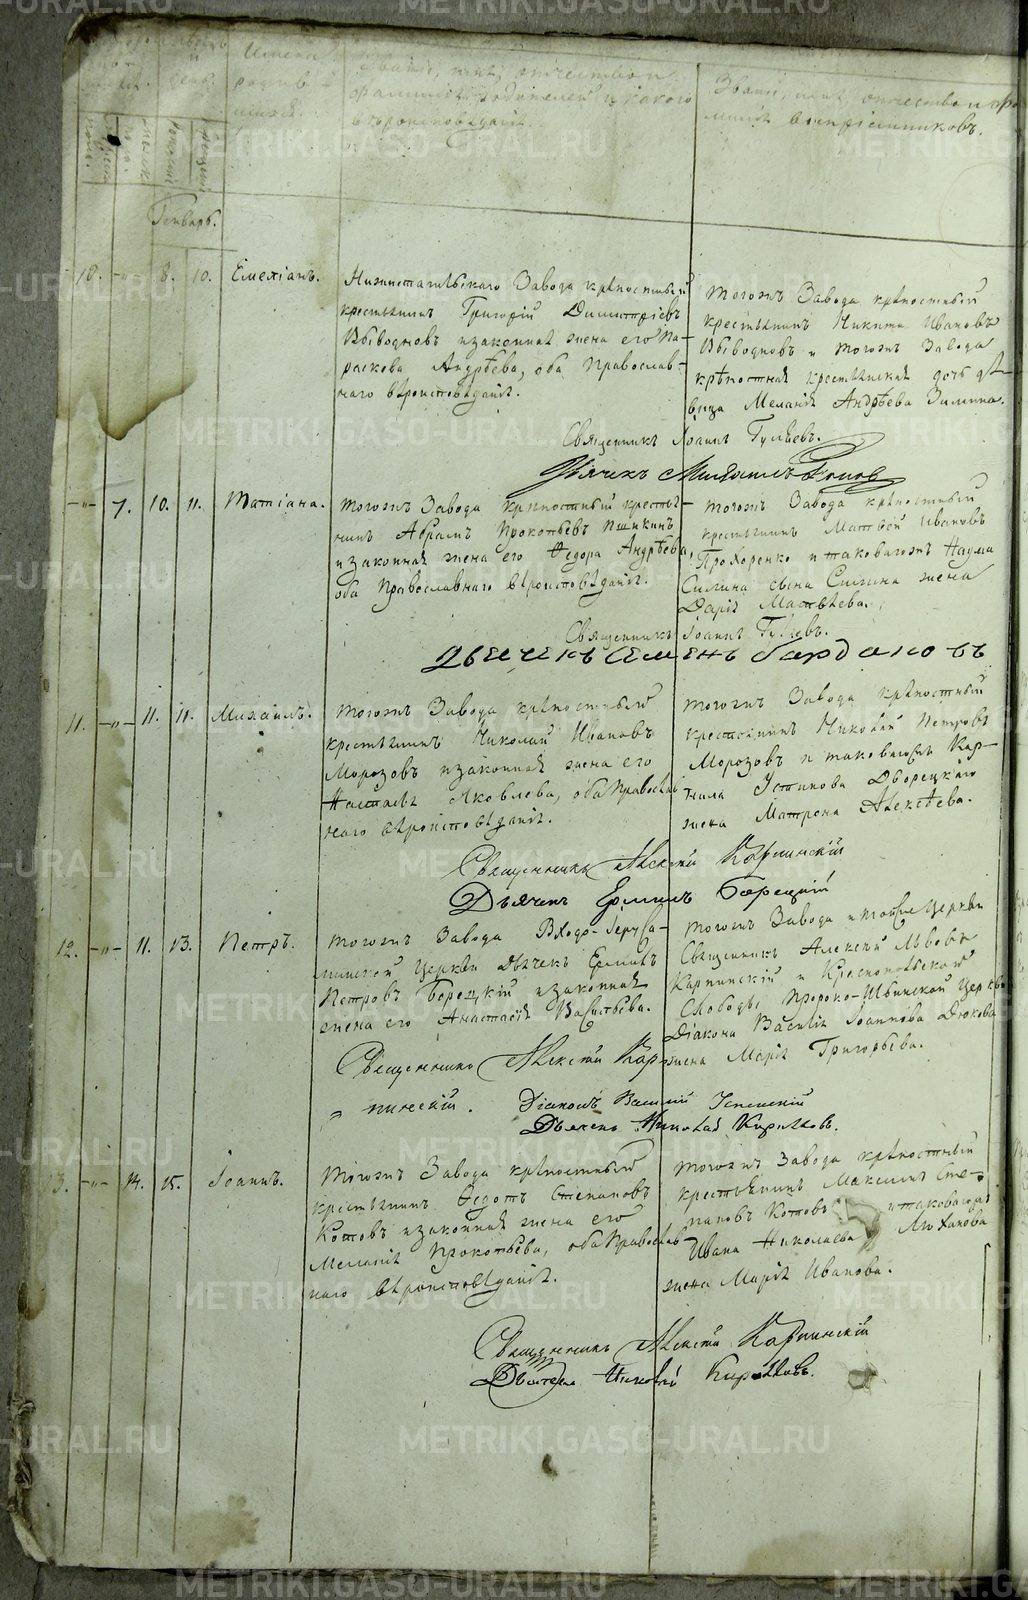 Имена родив-
шихся
Званіе, имя, отчество и
фамилія родителей и какого
вѣроисповѣданія.
Званіе, имя, отчество и фа-
милія воспріемниковъ.
Генварь.
10. -"- 8. 10. Емеліанъ.
Нижнетагильскаго Завода крѣпостный
крестьянинъ Григорій Димитріевъ
Выводновъ и законная жена его Па-
раскова Андрѣева, оба Православ-
наго вѣроисповѣданія.
тогожъ Завода крѣпостный
крестьянинъ Никита Ивановъ
Выводновъ и тогожъ Завода
крѣпостная крестьянская дочь дѣ-
вица Меланія Андрѣева Зимина.
Священникъ Іоаннъ Гуляевъ.
Дьячекъ Михаилъ
-"- 7. 10. 11. Татіана.
тогожъ Завода крѣпостный кресть-
нинъ Абрамъ Прокопьевъ
и законная жена его Федора Андрѣева,
оба Православнаго вѣроисповѣданія.
тогожъ Завода крѣпостный
крестьянинъ Матвей Ивановъ
Прохоренко и таковагожъ Наума
Силина сына Силина жена
Дарія Матвѣева.
Священникъ Іоаннъ Гуляевъ.
Дьечекъ Семенъ Бардаковъ
11. -"- 11. 11. Михаилъ.
тогожъ Завода крѣпостный
крестьянинъ Николай Ивановъ
Морозовъ и законная жена его
Настасья Яковлева, оба Православ
наго вѣроисповѣданія.
тогожъ Завода крѣпостный
крестьянинъ Николай Петровъ
Морозовъ и таковагожъ Кор-
нила Устинова Дворецкаго
жена Матрона Алексѣева.
Священникъ Алексій Карпинскій
Дьячекъ Ермилъ Борецкій
12. -"- 11. 13. Петръ.
тогожъ Завода Входо-Іеруса-
лимской Церкви Дьячекъ Ермилъ
Петровъ Борецкій и законная
жена его Анастасія Васильева.
тогожъ Завода и тойже Церкви
Священникъ Алексій Львовъ
Карпинскій и Краснопольской
Слободы Пророко-Ильинской Церкви
Діакона Василія Іоаннова Дюкова
жена Марія Григорьева.
Священникъ Алексій Кар-
пинскій. Діаконъ Василій Успенскій
Дьячекъ Николай Кирилловъ.
13. -"- 14. 15. Іоаннъ.
тогожъ Завода крѣпостный
крестьянинъ Федотъ Степановъ
Котовъ и законная жена его
Меланія Прокопьева, оба Православ
наго вѣроисповѣданія.
тогожъ Завода крѣпостный
крестьянинъ Максимъ Сте-
пановъ Котовъ и таковагожъ
Ивана Николаева
жена Марія Иванова.
Священникъ Алексій Карпинскій
Николай Кирилловъ.
METRIKI.GASO-URAL.RU